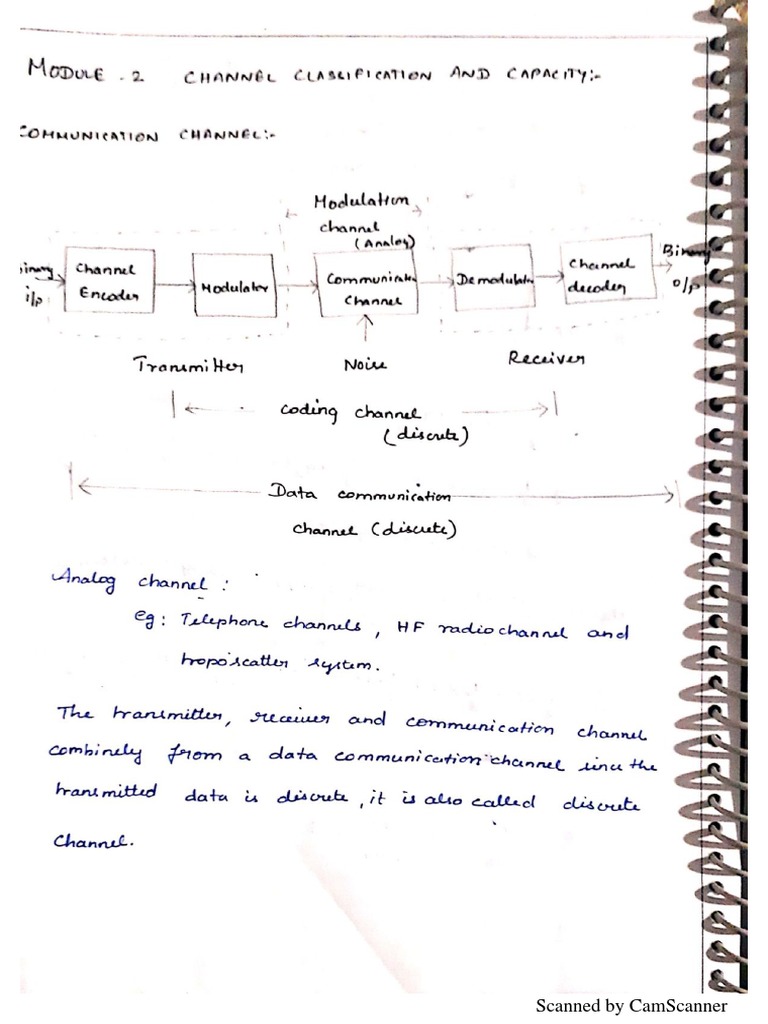 MODULE . 2 CHANNEL CLASSIFICATION AND CAPACITY:-
COMMUNICATION CHANNEL:-
Modulation
channel
(Analog)
Binary
i/p
Channel
Encoder
Modulator
Communication
Channel
Demodulator
Channel
decoder
Binary
o/p
Transmitter
Noise
Receiver
coding channel
(discrete)
Data communication
channel (discrete)
Analog channel :
eg: Telephone channels, HF radio channel and
tropo'scatter system.
The transmitter, receiver and communication channel
combinely from a data communication channel since the
transmitted data is discrete, it is also called discrete
Channel.
Scanned by CamScanner